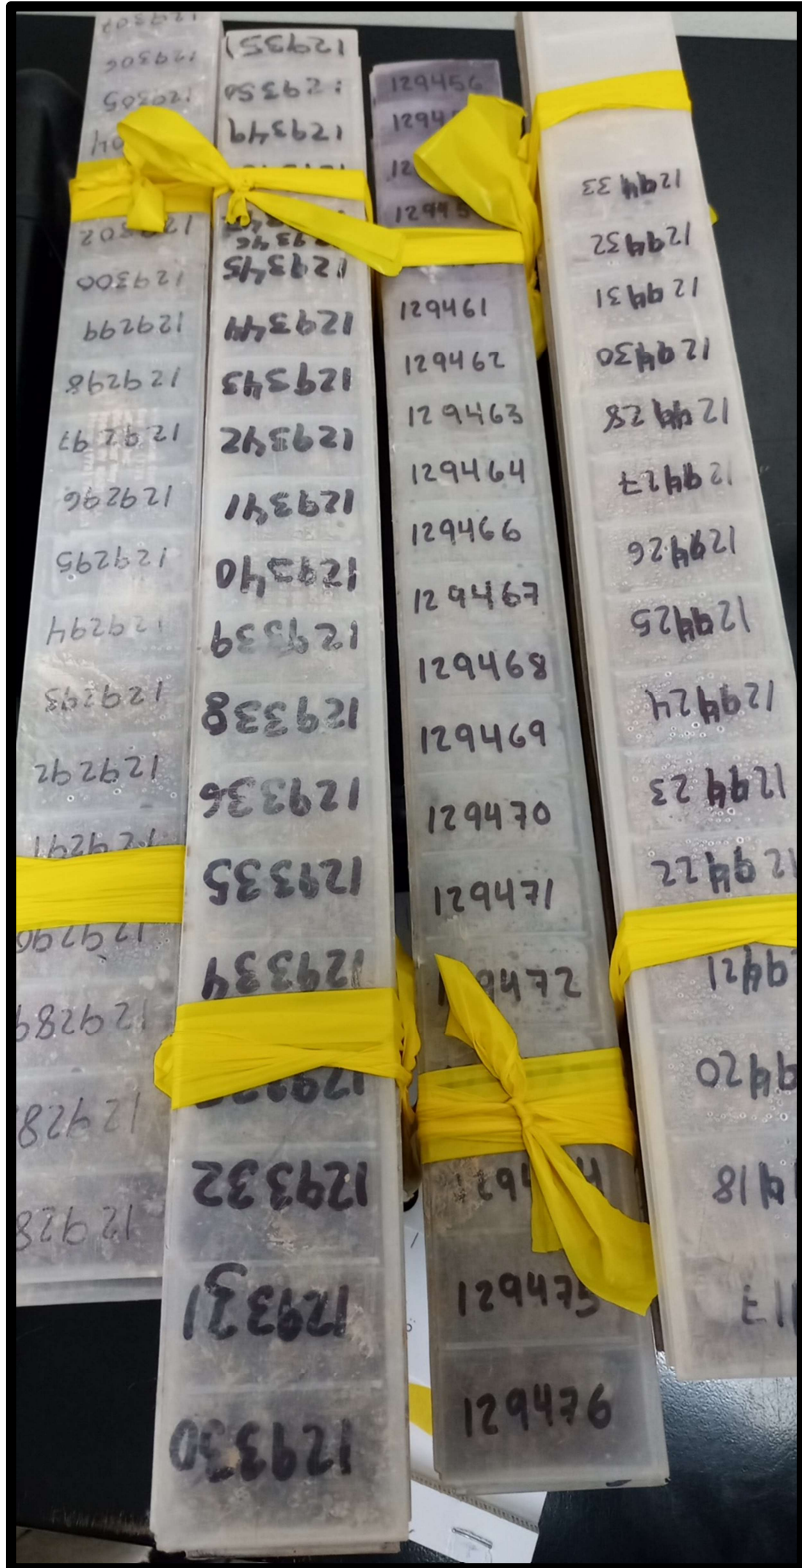 129307
129306
129305
129302
129300
129299
129298
129297
129296
129295
129294
129293
129292
129291
129290
129289
12928
12928
129351
129350
129349
129346
129345
129344
129343
129342
129341
129340
129339
129338
129336
129335
129334
129332
129331
129330
129456
129461
129462
129463
129464
129466
129467
129468
129469
129470
129471
129472
129475
129476
129433
129432
129431
129430
129428
129427
129426
129425
129424
129423
129422
9421
9420
9418
17